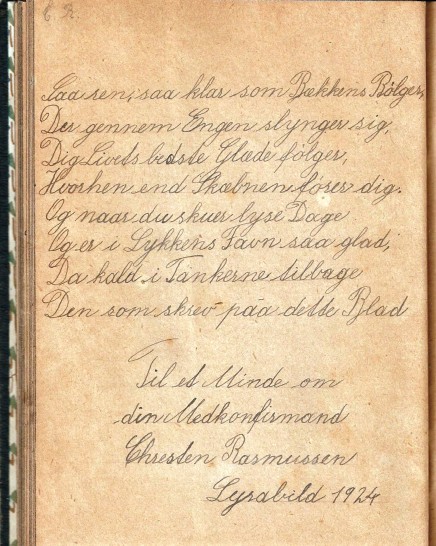 C. R.
Saa ren, saa klar som Bækkens Bølger,
Der gennem Engen slynger sig,
Dig Livets bedste Glæde følger,
Hvorhen end Skæbnen fører dig.
Og naar du skuer lyse Dage
Og er i Lykkens Favn saa glad,
Da kald i Tankerne tilbage
Den som skrev paa dette Blad
Til et Minde om
din Medkonfirmand
Chresten Rasmussen
Lysabild 1924